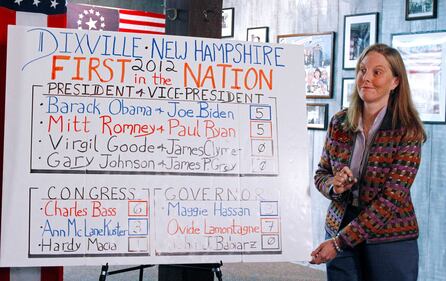 DIXVILLE • NEW HAMPSHIRE
FIRST 2012 in the NATION
PRESIDENT & VICE-PRESIDENT
• Barack Obama & Joe Biden 5
• Mitt Romney & Paul Ryan 5
• Virgil Goode & James Clymer 0
• Gary Johnson & James P. Gray 0
CONGRESS
• Charles Bass 6
• Ann McLane Kuster 3
• Hardy Macia
GOVERNOR
• Maggie Hassan
• Ovide Lamontagne 7
J. Babiarz